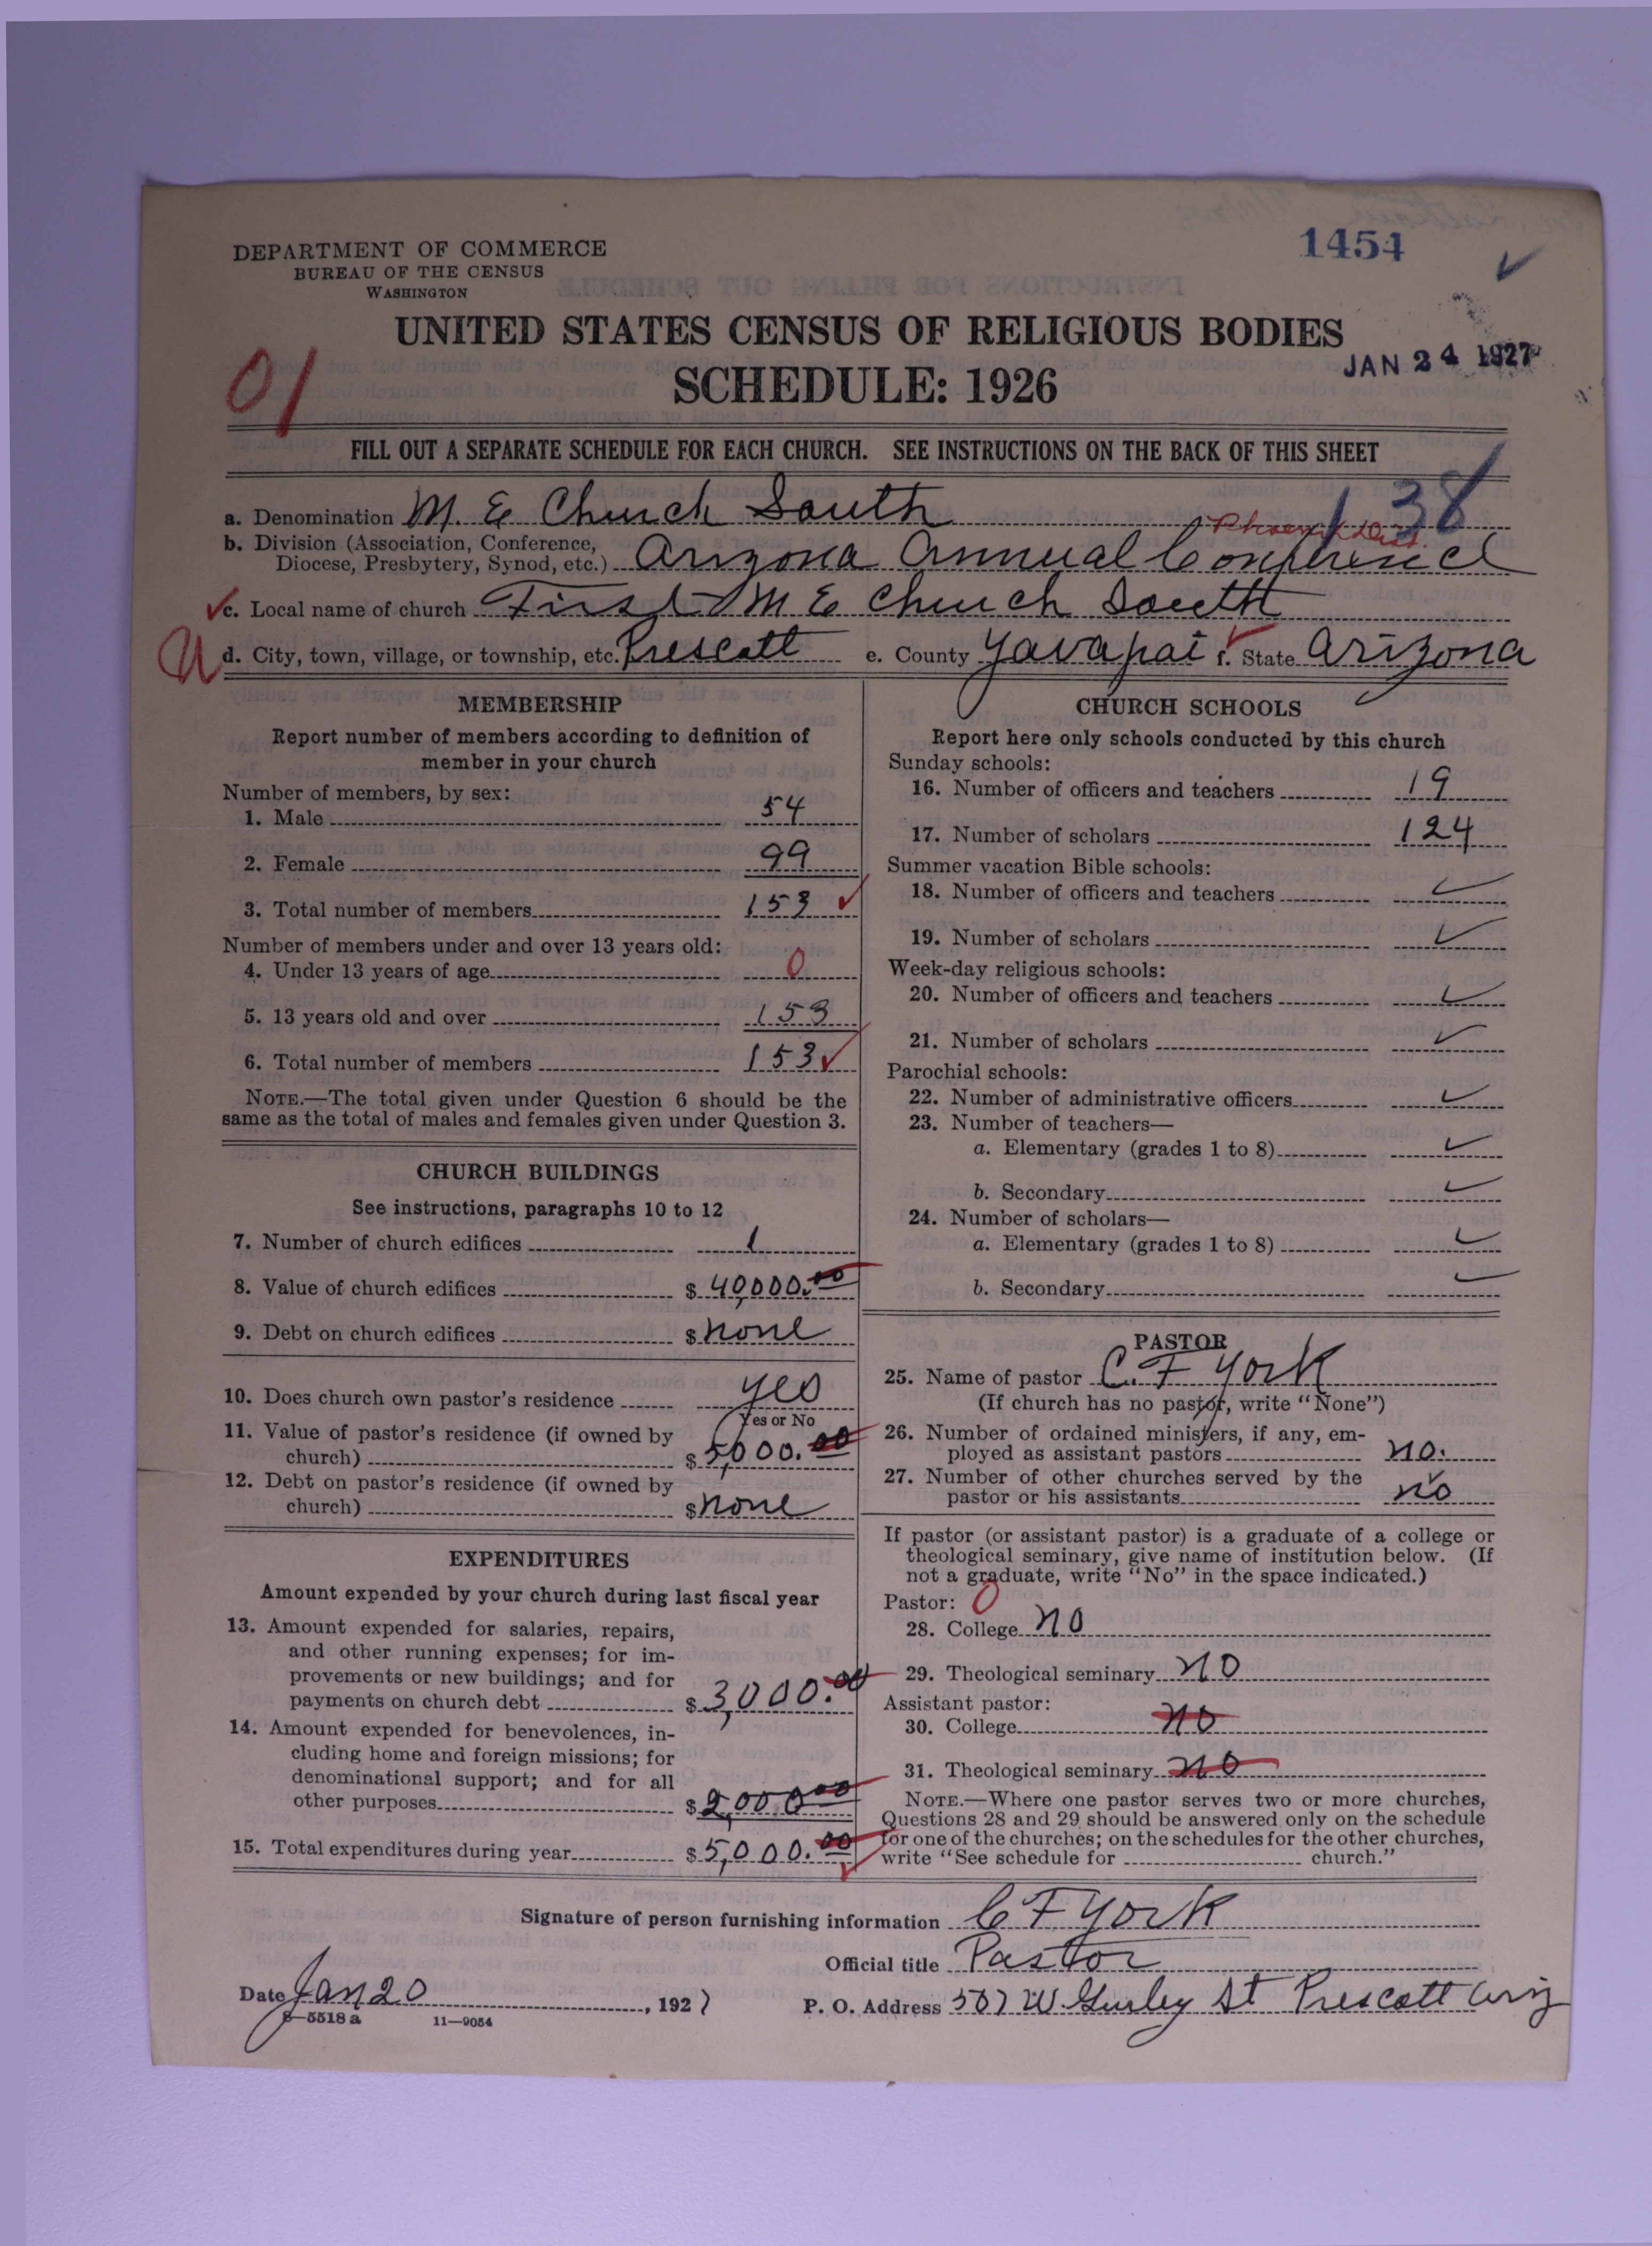 1454
DEPARTMENT OF COMMERCE
BUREAU OF THE CENSUS
WASHINGTON
UNITED STATES CENSUS OF RELIGIOUS BODIES
JAN 24 1927
01
SCHEDULE: 1926
FILL OUT A SEPARATE SCHEDULE FOR EACH CHURCH. SEE INSTRUCTIONS ON THE BACK OF THIS SHEET
138
a. Denomination M. E Church South
Phoenix Dist.
b. Division (Association, Conference,
Diocese, Presbytery, Synod, etc.) Arizona Annual Conference
c. Local name of church First M E Church South
d. City, town, village, or township, etc. Prescott e. County Yavapai f. State Arizona
MEMBERSHIP
Report number of members according to definition of
member in your church
Number of members, by sex:
1. Male 54
2. Female 99
3. Total number of members 153
Number of members under and over 13 years old:
4. Under 13 years of age 0
5. 13 years old and over 153
6. Total number of members 153
NOTE.—The total given under Question 6 should be the
same as the total of males and females given under Question 3.
CHURCH BUILDINGS
See instructions, paragraphs 10 to 12
7. Number of church edifices 1
8. Value of church edifices $ 40,000.00
9. Debt on church edifices $ none
10. Does church own pastor's residence yes
Yes or No
11. Value of pastor's residence (if owned by
church) $ 5,000.00
12. Debt on pastor's residence (if owned by
church) $ none
EXPENDITURES
Amount expended by your church during last fiscal year
13. Amount expended for salaries, repairs,
and other running expenses; for im-
provements or new buildings; and for
payments on church debt $ 3,000.00
14. Amount expended for benevolences, in-
cluding home and foreign missions; for
denominational support; and for all
other purposes $ 2,000.00
15. Total expenditures during year $ 5,000.00
CHURCH SCHOOLS
Report here only schools conducted by this church
Sunday schools:
16. Number of officers and teachers 19
17. Number of scholars 124
Summer vacation Bible schools:
18. Number of officers and teachers
19. Number of scholars
Week-day religious schools:
20. Number of officers and teachers
21. Number of scholars
Parochial schools:
22. Number of administrative officers
23. Number of teachers—
a. Elementary (grades 1 to 8)
b. Secondary
24. Number of scholars—
a. Elementary (grades 1 to 8)
b. Secondary
PASTOR
25. Name of pastor C. F York
(If church has no pastor, write "None")
26. Number of ordained ministers, if any, em-
ployed as assistant pastors no.
27. Number of other churches served by the
pastor or his assistants no
If pastor (or assistant pastor) is a graduate of a college or
theological seminary, give name of institution below. (If
not a graduate, write "No" in the space indicated.)
Pastor: 0
28. College no
29. Theological seminary no
Assistant pastor:
30. College no
31. Theological seminary no
NOTE.—Where one pastor serves two or more churches,
Questions 28 and 29 should be answered only on the schedule
for one of the churches; on the schedules for the other churches,
write "See schedule for church."
Signature of person furnishing information C F York
Official title Pastor
Date Jan 20, 1927 P. O. Address 507 W. Gurley St Prescott Ariz
8—5518 a 11—9054